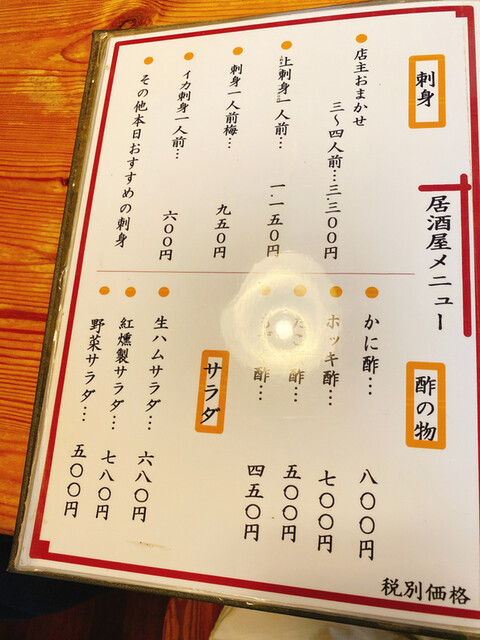 居酒屋メニュー
刺身
店主おまかせ
三〜四人前…三、三〇〇円
上刺身一人前…一、一五〇円
刺身一人前梅…九五〇円
イカ刺身一人前…六〇〇円
その他本日おすすめの刺身
酢の物
かに酢…八〇〇円
ホッキ酢…七〇〇円
たこ酢…五〇〇円
酢…四五〇円
サラダ
生ハムサラダ…六八〇円
紅燻製サラダ…七八〇円
野菜サラダ…五〇〇円
税別価格